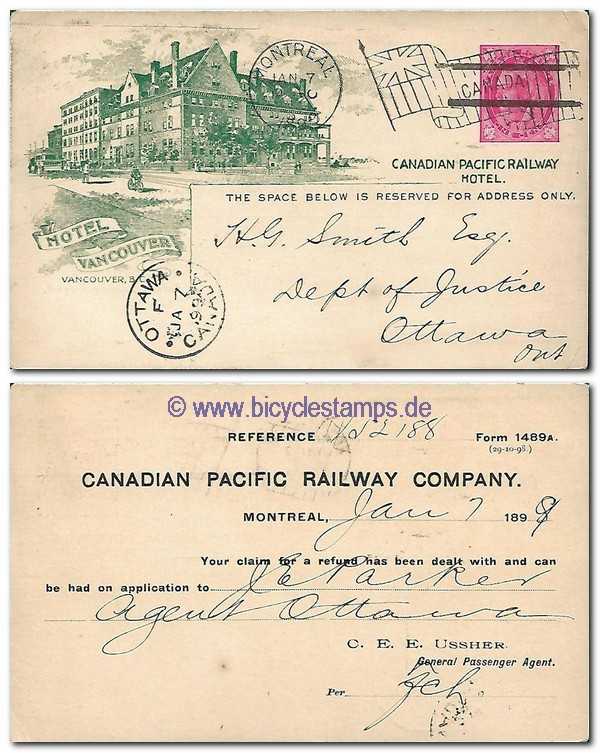 MONTREAL
JAN 7
CANADA
CANADIAN PACIFIC RAILWAY
HOTEL.
THE SPACE BELOW IS RESERVED FOR ADDRESS ONLY.
HOTEL
VANCOUVER
VANCOUVER, B.C.
H.G. Smith Esq.
Dept of Justice
Ottawa
Ont
OTTAWA
F
JA 7
99
CANADA
© www.bicyclestamps.de
REFERENCE 188 Form 1489A.
(29-10-98.)
CANADIAN PACIFIC RAILWAY COMPANY.
MONTREAL, Jan 7 1899
Your claim for a refund has been dealt with and can
be had on application to J E Parker
Agent Ottawa
C. E. E. USSHER.
General Passenger Agent.
Per